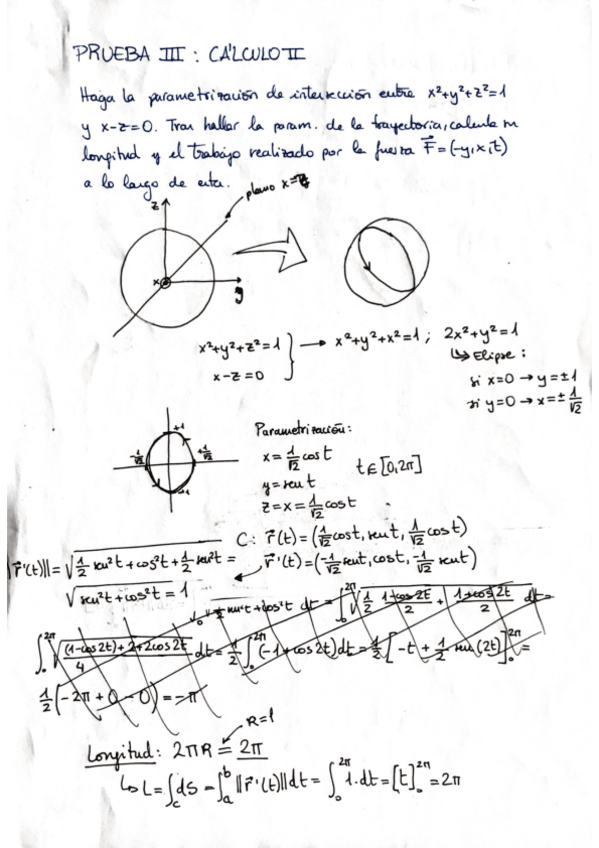 PRUEBA III : CÁLCULO II
Haga la parametrización de intersección entre x²+y²+z²=1
y x-z=0. Tras hallar la param. de la trayectoria, calcule su
longitud y el trabajo realizado por la fuerza F⃗=(-y,x,t)
a lo largo de esta.
plano x=z
z
x
y
x²+y²+z²=1
x-z=0
→ x²+y²+x²=1 ; 2x²+y²=1
↳ Elipse :
si x=0 → y=±1
si y=0 → x=±1/√2
+1
-1/√2
+1/√2
-1
Parametrización:
x=1/√2 cos t
y=sen t
z=x=1/√2 cos t
t∈[0,2π]
C: r⃗(t)=(1/√2 cos t, sen t, 1/√2 cos t)
r⃗'(t)=(-1/√2 sen t, cos t, -1/√2 sen t)
||r⃗'(t)||=√(1/2 sen²t+cos²t+1/2 sen²t) =
√(sen²t+cos²t) = 1
1/2(-2π+0-0)=-π
R=1
Longitud: 2πR = 2π
↳ L=∫_C dS = ∫_a^b ||r⃗'(t)||dt = ∫_0^{2π} 1·dt = [t]_0^{2π} = 2π